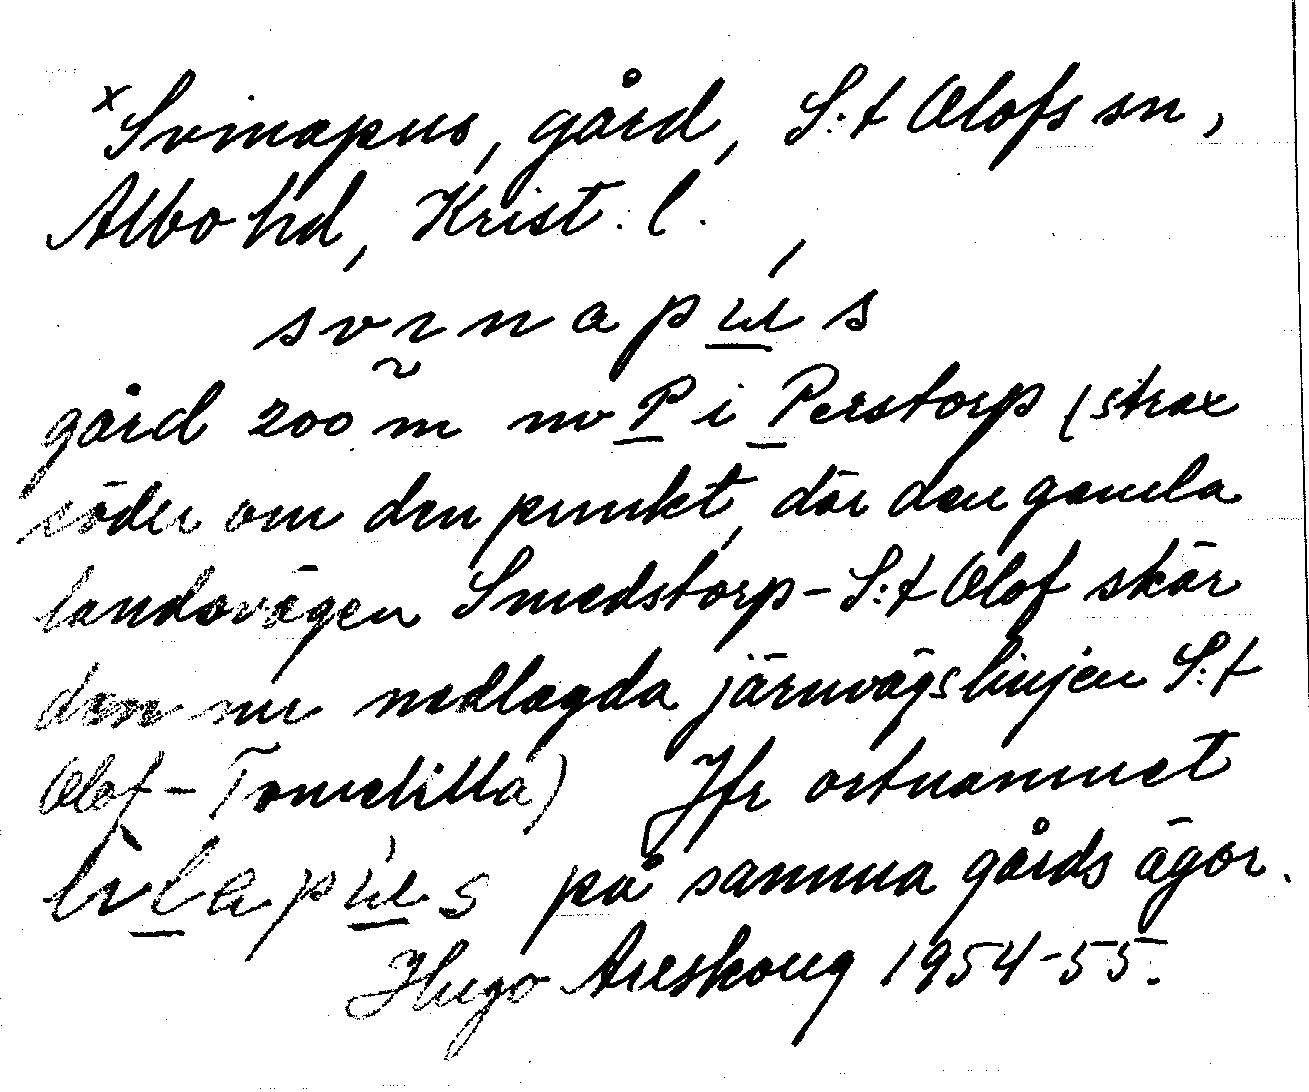 x Svinapus, gård, S:t Olofs sn,
Albo hd, Krist. l.
svɪnapu̲´s
gård 200 m nv P i Perstorp (strax
söder om den punkt, där den gamla
landsvägen Smedstorp-S:t Olof skär
den nu nedlagda järnvägslinjen S:t
Olof-Tomelilla) Jfr ortnamnet
lɪl̲apu̲´s på samma gårds ägor.
Hugo Areskoug 1954-55.